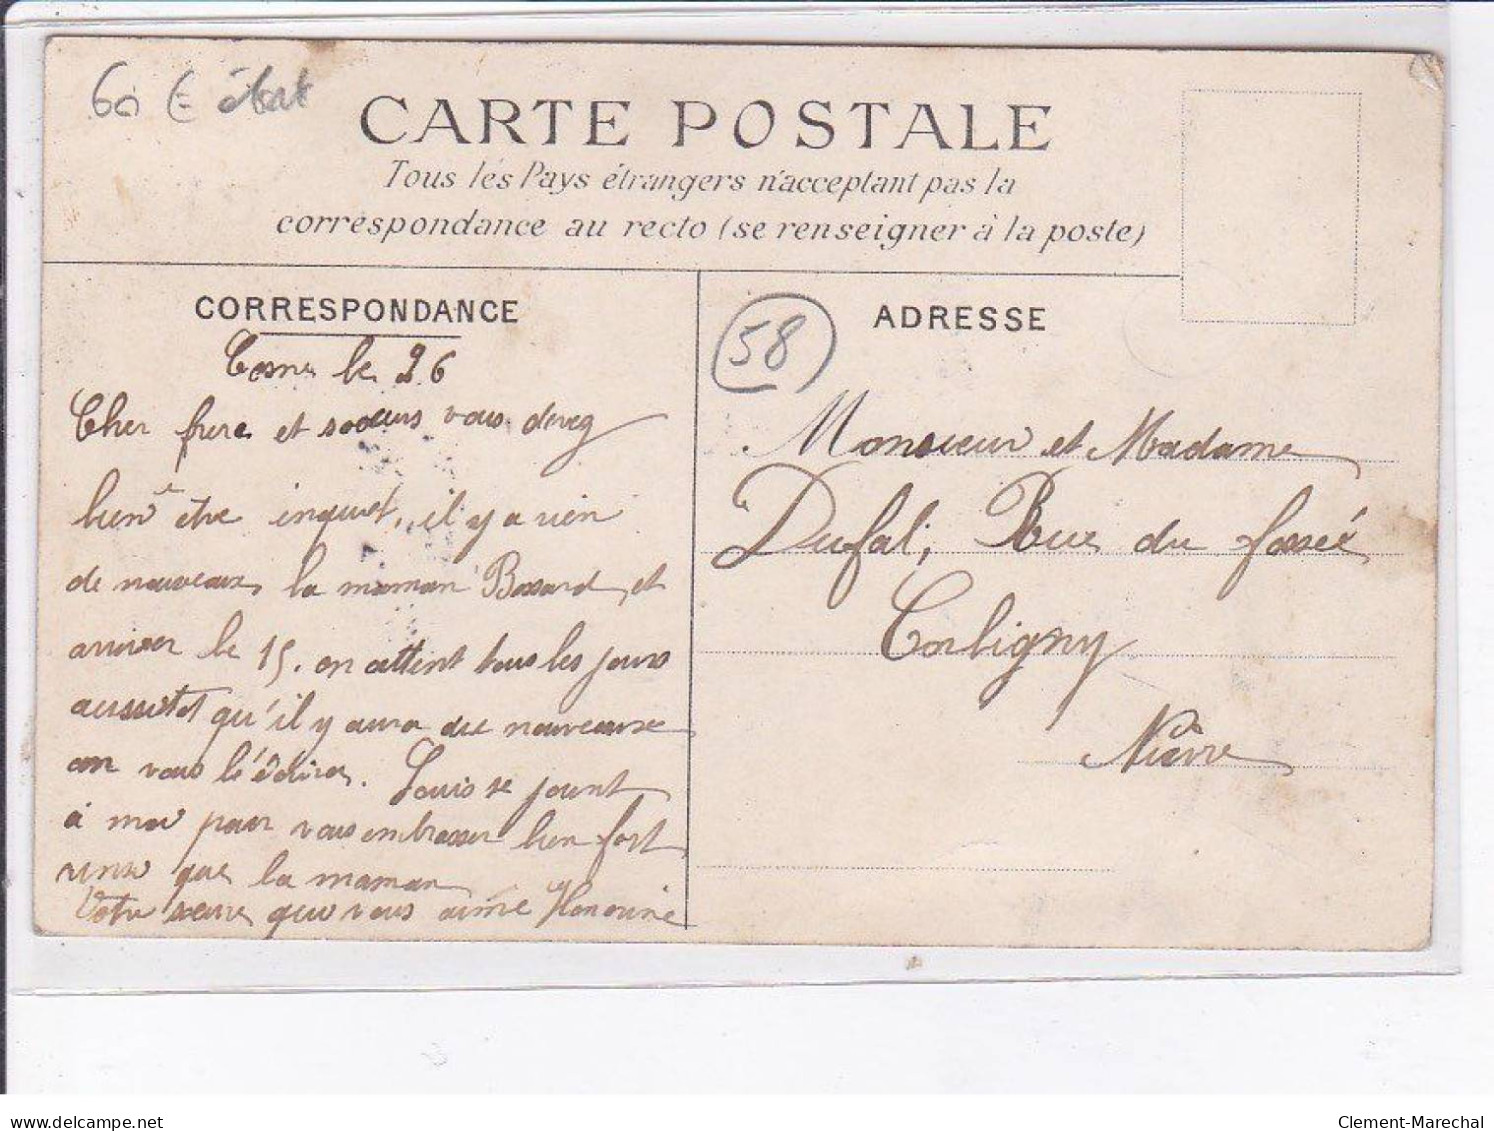 60 € état
CARTE POSTALE
Tous les Pays étrangers n'acceptant pas la
correspondance au recto (se renseigner à la poste)
CORRESPONDANCE
Cosne le 26
Cher frere et soeurs vous devez
bien être inquiet, il y a rien
de nouveaux la maman Bossard et
arriver le 15. on attent tous les jours
aussitot qu'il y aura du nouveaux
on vous l'écrira. Louis se joint
à moi pour vous embrasser bien fort
ainsi que la maman
Votre soeur qui vous aime Honorine
58
ADRESSE
Monsieur et Madame
Dufal, Rue du fossée
Corbigny
Nièvre
delcampe.net
Clement-Marechal